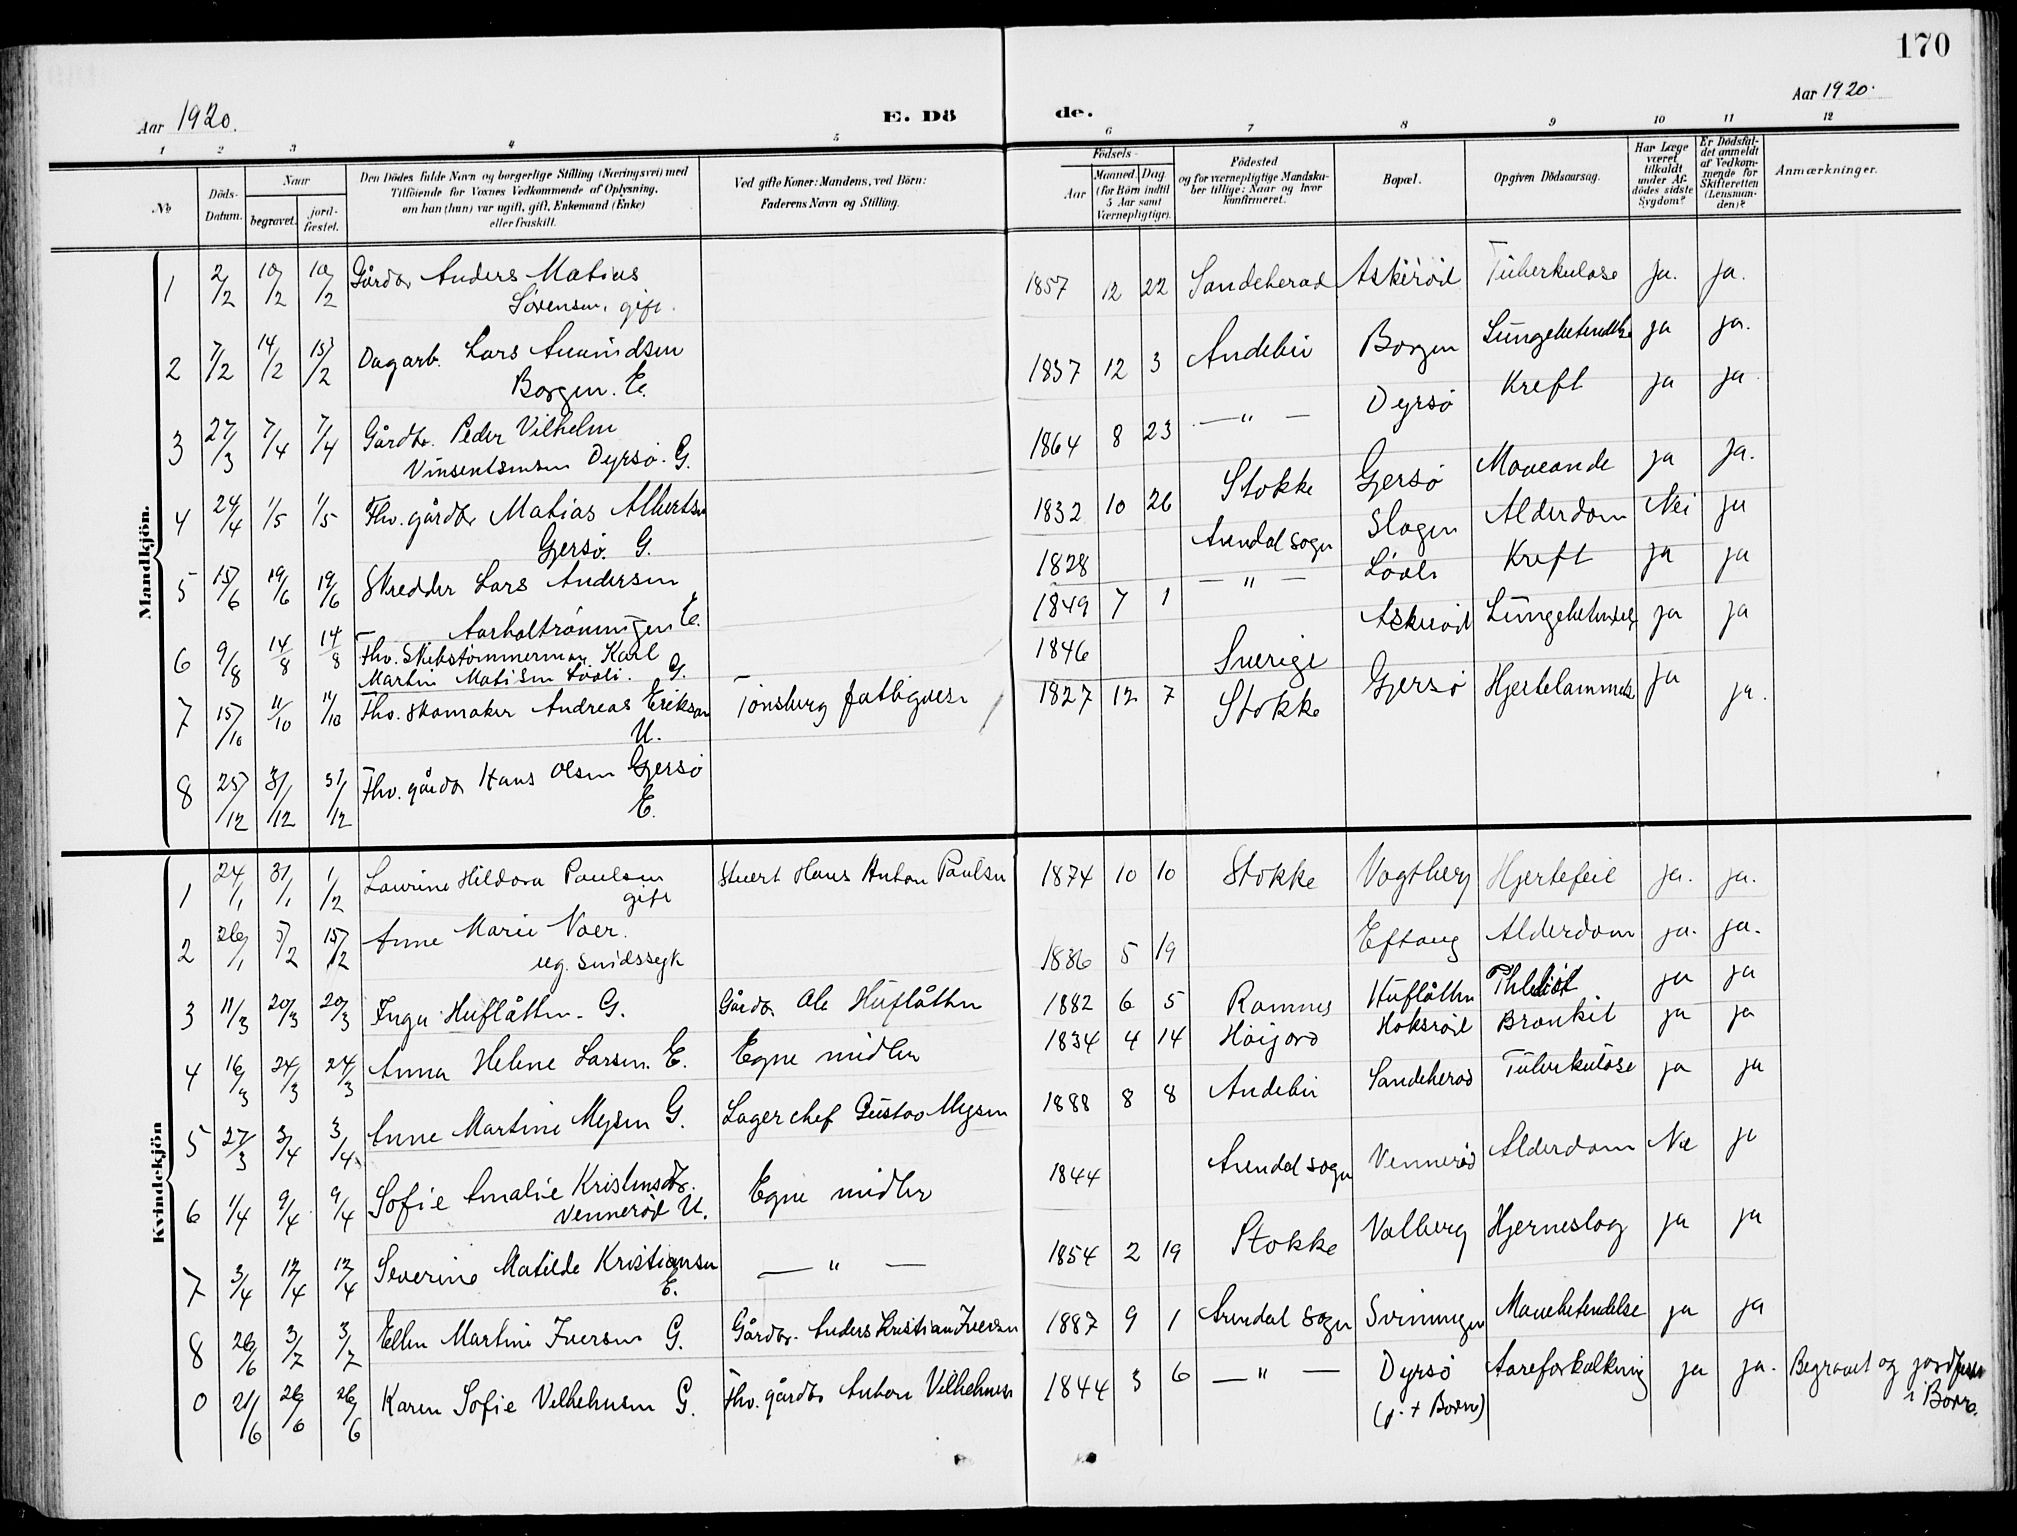 170
Aar 1920.
E. Dö
de.
Aar 1920.
1 2 3 4 5 6 7 8 9 10 11 12
No
Döds-
Datum.
Naar
begravet.
jord-
fæstet.
Den Dödes fulde Navn og borgerlige Stilling (Næringsvei) med
Tilföiende for Voxnes Vedkommende af Oplysning,
om han (hun) var ugift, gift, Enkemand (Enke)
eller fraskilt.
Ved gifte Koner: Mandens, ved Börn:
Faderens Navn og Stilling.
Födsels-
Aar
Maaned. Dag
(for Börn indtil
5 Aar samt
Værnepligtige).
Födested
og for værnepligtige Mandska-
ber tillige: Naar og hvor
konfirmeret.
Bopæl.
Opgiven Dödsaarsag.
Har Læge
været
tilkaldt
under Af-
dödes sidste
Sygdom?
Er Dödsfal-
det anmeldt
af Vedkom-
mende for
Skifteretten
(Lensman-
den)?
Anmærkninger.
Mandkjön.
1 2/2 10/2 10/2 Gårdbr Anders Matias
Sørensen, gift. 1857 12 22 Sandeherad Askerød Tuberkulose ja. ja.
2 7/2 14/2 15/2 Dagarb. Lars Amundsen
Borgen. E. 1837 12 3 Andebu Borgen Lungebetendelse ja ja.
3 27/3 7/4 7/4 Gårdbr. Peder Vilhelm
Vinsentsensen Dyrsø. G. 1864 8 23 — " — Dyrsø Kreft ja ja
4 24/4 1/5 1/5 Fhv. gårdbr Matias Albertsen
Gjersø. G. 1832 10 26 Stokke Gjersø Maveonde ja ja.
5 15/6 19/6 19/6 Skredder Lars Andersen
Aarholtrønningen E. 1828 Arendal sogn Slagen Alderdom Nei ja
6 9/8 14/8 14/8 Fhv. Skibstømmerman Karl
Martin Matisen Løoli. G. 1849 7 1 — " — Løoli Kreft ja ja
7 15/10 11/10 11/10 Fhv. skomaker Andreas Erikson
U. Tønsberg fattigvesn 1846 Sverige Askerød Lungebetendelse ja ja
8 25/12 31/12 31/12 Fhv. gårdbr Hans Olsen Gjersø
E. 1827 12 7 Stokke Gjersø Hjertelammelse ja ja.
Kvindekjön
1 24/1 31/1 1/2 Laurine Hildora Paulsen
gift Stuert Hans Anton Paulsen 1874 10 10 Stokke Vogtberg Hjertefeil ja. ja.
2 26/1 5/2 15/2 Anne Marie Noer.
ug. sindssyk 1836 5 19 Eftang Alderdom ja. ja.
3 11/3 20/3 20/3 Inga Huflåtten. G. Gårdbr. Ole Huflåtten 1882 6 5 Ramnes Huflåtten ja ja
4 16/3 24/3 24/3 Anna Helene Larsen. E. Egne midler 1834 4 14 Høijord Hoksrød Bronkit ja ja
5 27/3 3/4 3/4 Anne Martine Mysen G. Lagerchef Gustav Mysen 1888 8 8 Andebu Sandeherad Tuberkulose ja ja
6 1/4 9/4 9/4 Sofie Amalie Kristensdtr.
Vennerød U. Egne midler 1844 Arendal sogn Vennerød Alderdom Nei ja
7 3/4 12/4 12/4 Severine Matilde Kristiansen
E. — " — 1854 2 19 Stokke Valberg Hjerneslag ja ja
8 26/6 3/7 3/7 Ellen Martine Iversen G. Gårdbr. Anders Kristian Iversen 1887 9 1 Arendal sogn Svinungen Mavebetendelse ja ja
0 21/6 26/6 26/6 Karen Sofie Vilhelmsen G. Fhv. gårdbr Anton Vilhelmsen 1844 3 6 — " — Dyrsø
(p. t Borre) Aareforkalkning ja ja. Begravet og jordfæstet
i Borre.